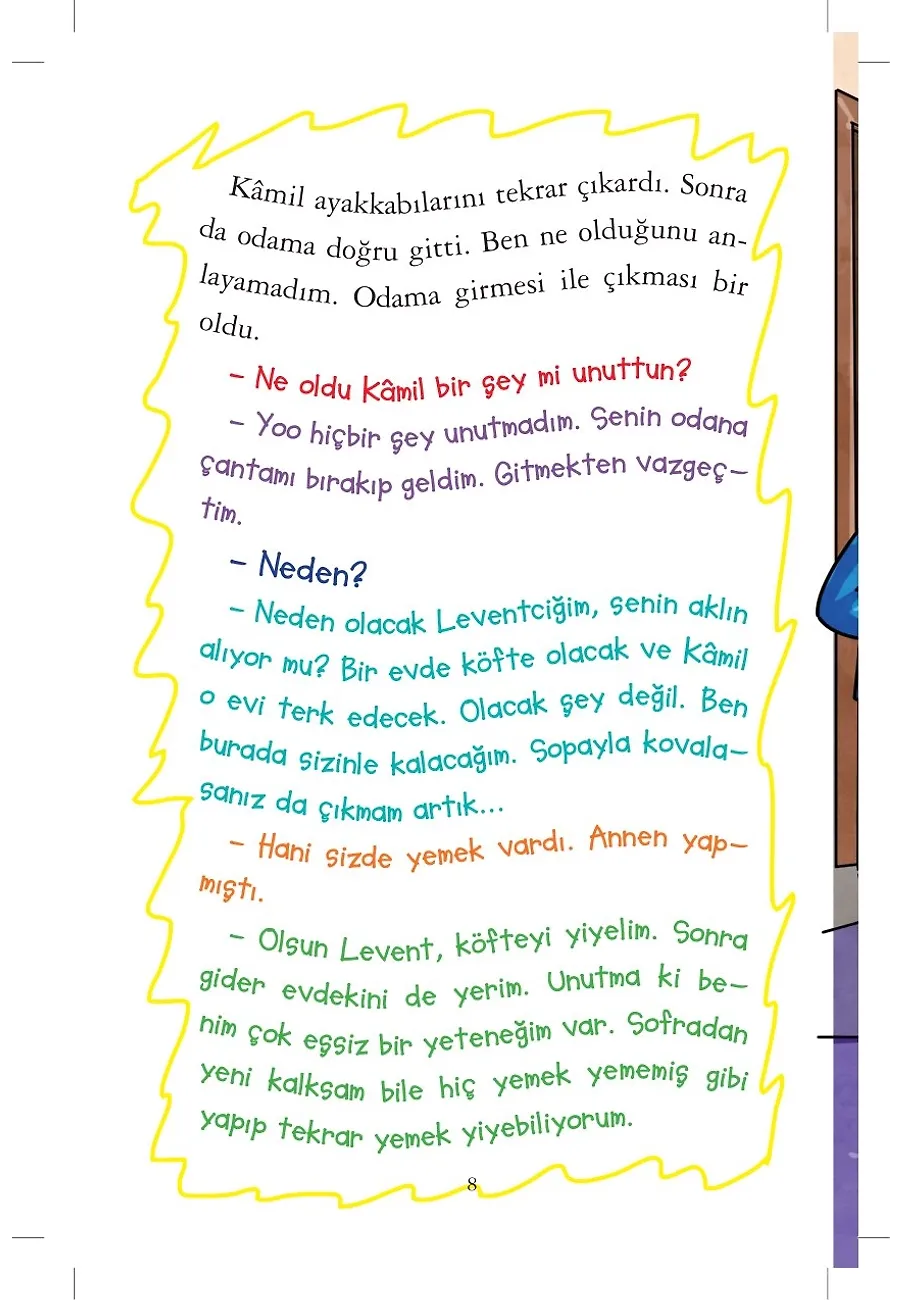 Kâmil ayakkabılarını tekrar çıkardı. Sonra
da odama doğru gitti. Ben ne olduğunu an-
layamadım. Odama girmesi ile çıkması bir
oldu.
– Ne oldu Kâmil bir şey mi unuttun?
– Yoo hiçbir şey unutmadım. Senin odana
çantamı bırakıp geldim. Gitmekten vazgeç–
tim.
– Neden?
– Neden olacak Leventciğim, senin aklın
alıyor mu? Bir evde köfte olacak ve Kâmil
o evi terk edecek. Olacak şey değil. Ben
burada sizinle kalacağım. Sopayla kovala–
sanız da çıkmam artık...
– Hani sizde yemek vardı. Annen yap–
mıştı.
– Olsun Levent, köfteyi yiyelim. Sonra
gider evdekini de yerim. Unutma ki be–
nim çok eşsiz bir yeteneğim var. Sofradan
yeni kalksam bile hiç yemek yememiş gibi
yapıp tekrar yemek yiyebiliyorum.
8